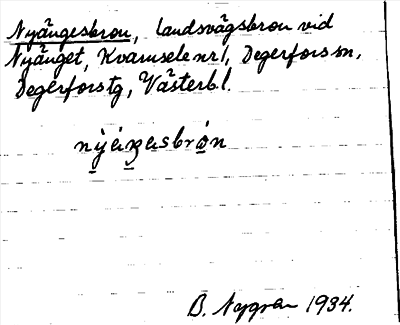 Nyängesbron, landsvägsbron vid
Nyänget, Kvarnsele nr 1, Degerfors sn,
Degerfors tg, Västerb l.
B. Nygren 1934.